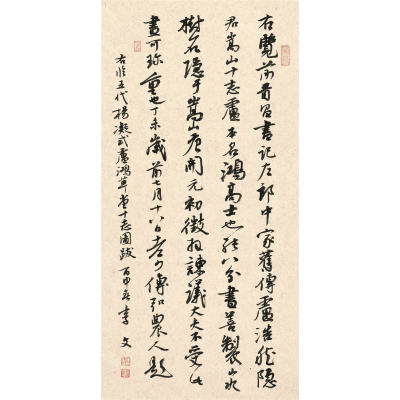 右覽前晉昌書記左郎中家舊傳盧浩然隱
君嵩山十志盧本名鴻高士也能八分書善製山水
樹石隱于嵩山唐開元初徵拜諫議大夫不受此
畫可珍重也丁未歲前七月十八日老少傅弘農人題
右臨五代楊凝式盧鴻草堂十志圖跋 丙申春李文